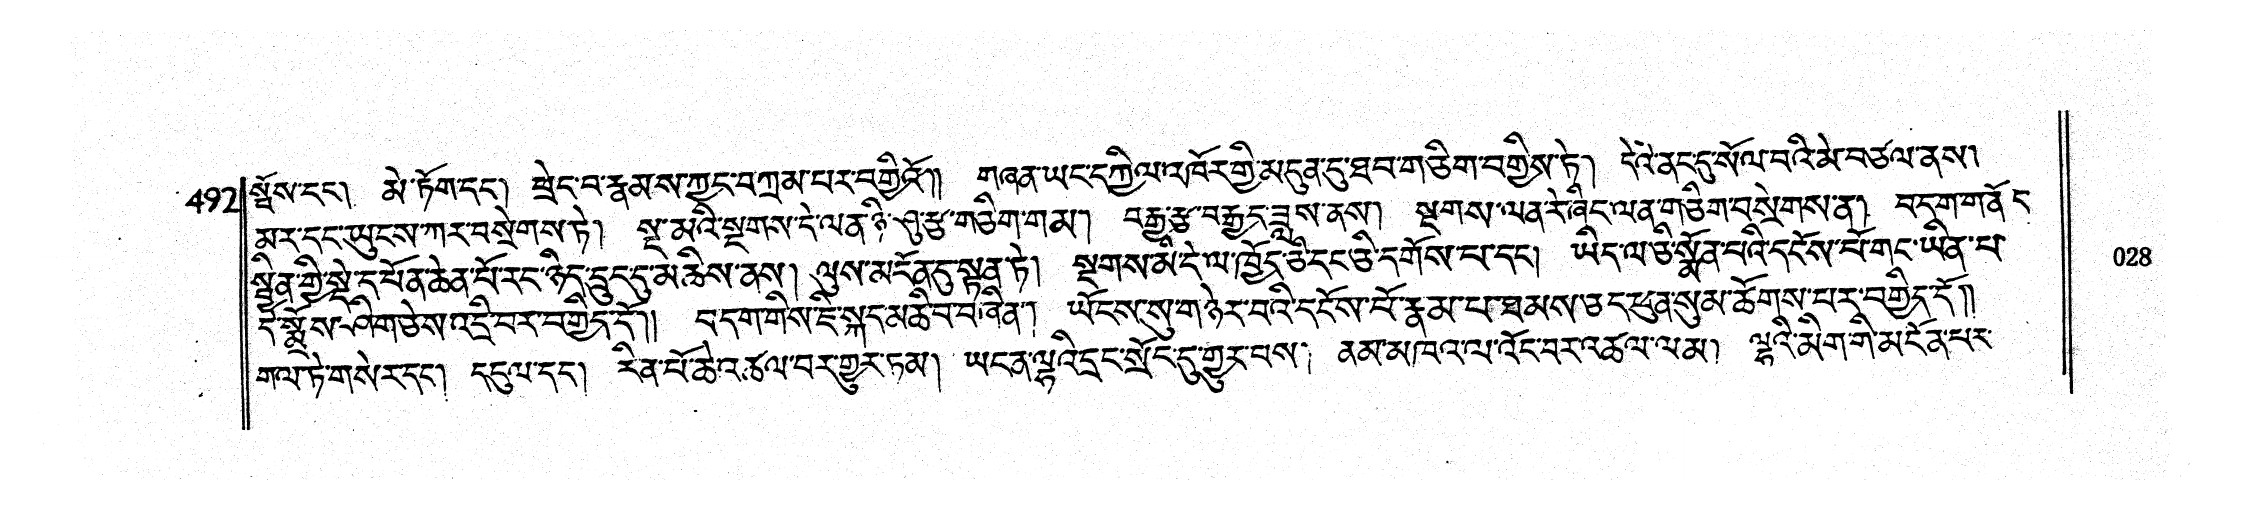 492 སྤོས་དང། མེ་ཏོག་དང། ཕྲེང་བ་རྣམས་ཀྱང་བཀྲམ་པར་བགྱིའོ།། གཞན་ཡང་དཀྱིལ་འཁོར་གྱི་མདུན་དུ་ཐབ་གཅིག་བགྱིས་ཏེ། དེའི་ནང་དུ་སོལ་བའི་མེ་བཙལ་ནས།
མར་དང་ཡུངས་ཀར་བསྲེགས་ཏེ། སྔ་མའི་སྔགས་དེ་ལན་ཉི་ཤུ་རྩ་གཅིག་གམ། བརྒྱ་རྩ་བརྒྱད་ཟླས་ནས། སྔགས་ལན་རེ་ཞིང་ལན་གཅིག་བསྲེགས་ན། བདག་གནོད
སྦྱིན་གྱི་སྡེ་དཔོན་ཆེན་པོ་རང་ཉིད་དྲུང་དུ་མཆིས་ནས། ལུས་མངོན་དུ་སྟན་ཏེ། སྔགས་མི་དེ་ལ་ཁྱོད་ཅི་དང་ཅི་དགོས་པ་དང། ཡིད་ལ་ཅི་སྨོན་པའི་དངོས་པོ་གང་ཡིན་པ་
དེ་སྨྲོས་ཤིག་ཅེས་འདྲི་བར་བགྱིད་དོ།། བདག་གིས་ཇི་སྐད་མཆི་བ་བཞིན། ཡོངས་སུ་གཉེར་བའི་དངོས་པོ་རྣམ་པ་ཐམས་ཅད་ཕུན་སུམ་ཚོགས་པར་བགྱིད་དོ།།
གལ་ཏེ་གསེར་དང། དངུལ་དང། རིན་པོ་ཆེ་འཚལ་བར་གྱུར་ཏམ། ཡང་ན་ལྷའི་དྲང་སྲོང་དུ་གྱུར་པས། ནམ་མཁའ་ལ་འོང་བར་འཚལ་ལམ། ལྷའི་མིག་གི་མངོན་པར་
028